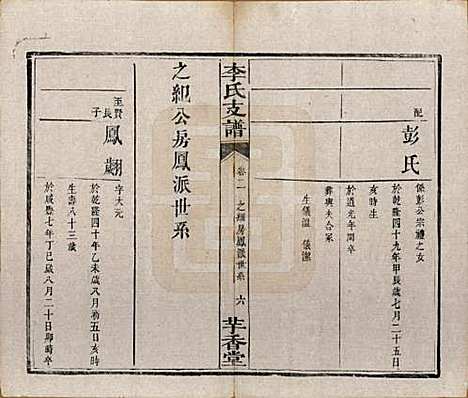 配
彭氏
係彭公宗禮之女
於乾隆四十九年甲辰歲七月二十五日
亥時生
於道光年間卒
葬與夫合冢
生儀溫 儀潔
李氏支譜
卷二
之紀房鳳派世系
六
芉香堂
之紀公房鳳派世系
至賢長子
鳳翽
字大元
於乾隆四十年乙未歲八月初五日亥時
生壽八十三歲
於咸豐七年丁巳歲八月二十日卯時卒